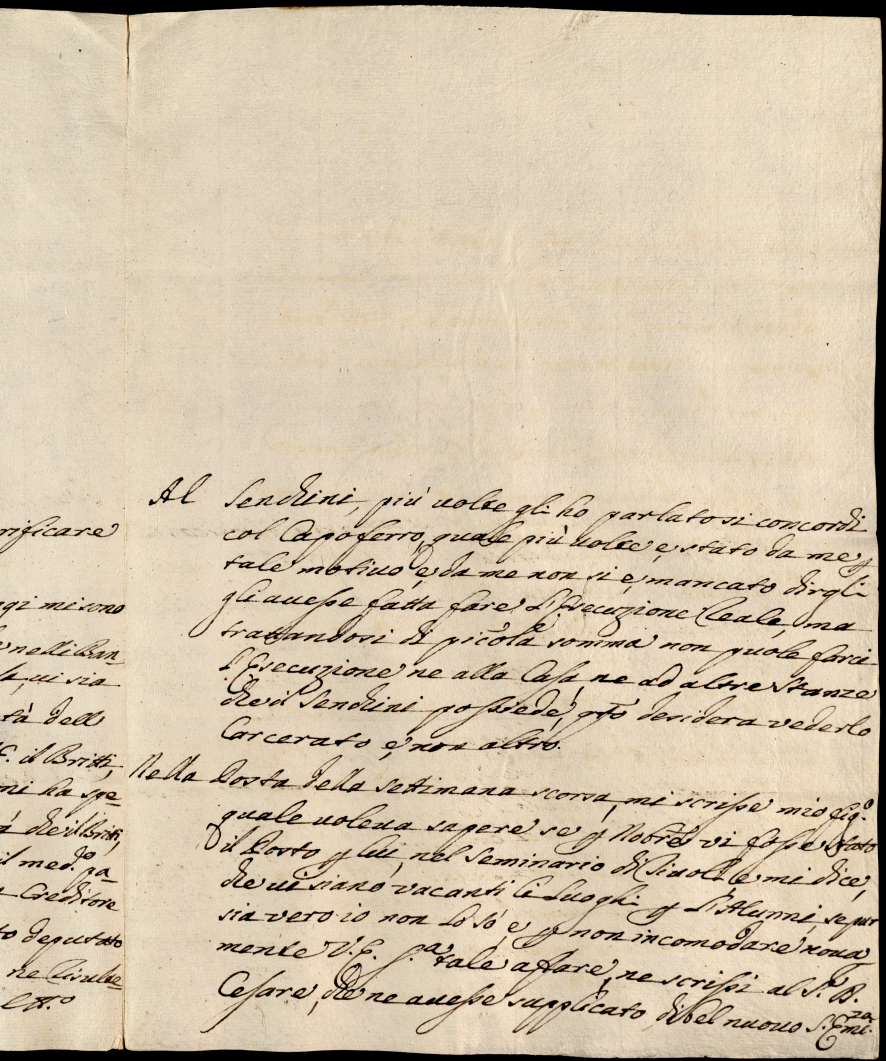 rificare
ggi mi sono
e nelli Ban
la, ui sia
tà dell
E. il Britti,
mi ha spe
à che il Britti,
il med.º pa
Creditore
to deputato
ne risulte
ett.º
Al Senchini, più uolte gli ho parlato si concordi
col Capoferro, quale più uolte è, stato da me p
tale motiuo, è, da me non si è, mancato dirgli
gli auesse fatta fare l'Esecuzione Reale, ma
trattandosi di piccola somma non puole farci
l'Esecuzione ne alla Casa, ne ad altre stanze
che il Senchini possiede, qto desidera vederlo
Carcerato è, non altro.
Nella Posta della settimana scorsa, mi scrisse mio fig.º
quale uoleua sapere se p Nobre vi fosse stato
il Posto p lui, nel Seminario di Tiuoli e mi dice,
che ui siano vacanti li Luoghi p l'Alunni, se pur
sia vero io non lo só, e, p non incomodare noua
mente V.E. p.a tale affare, ne scrissi al S.r B.
Cesare, che ne auesse supplicato di bel nuouo S. Emi.za